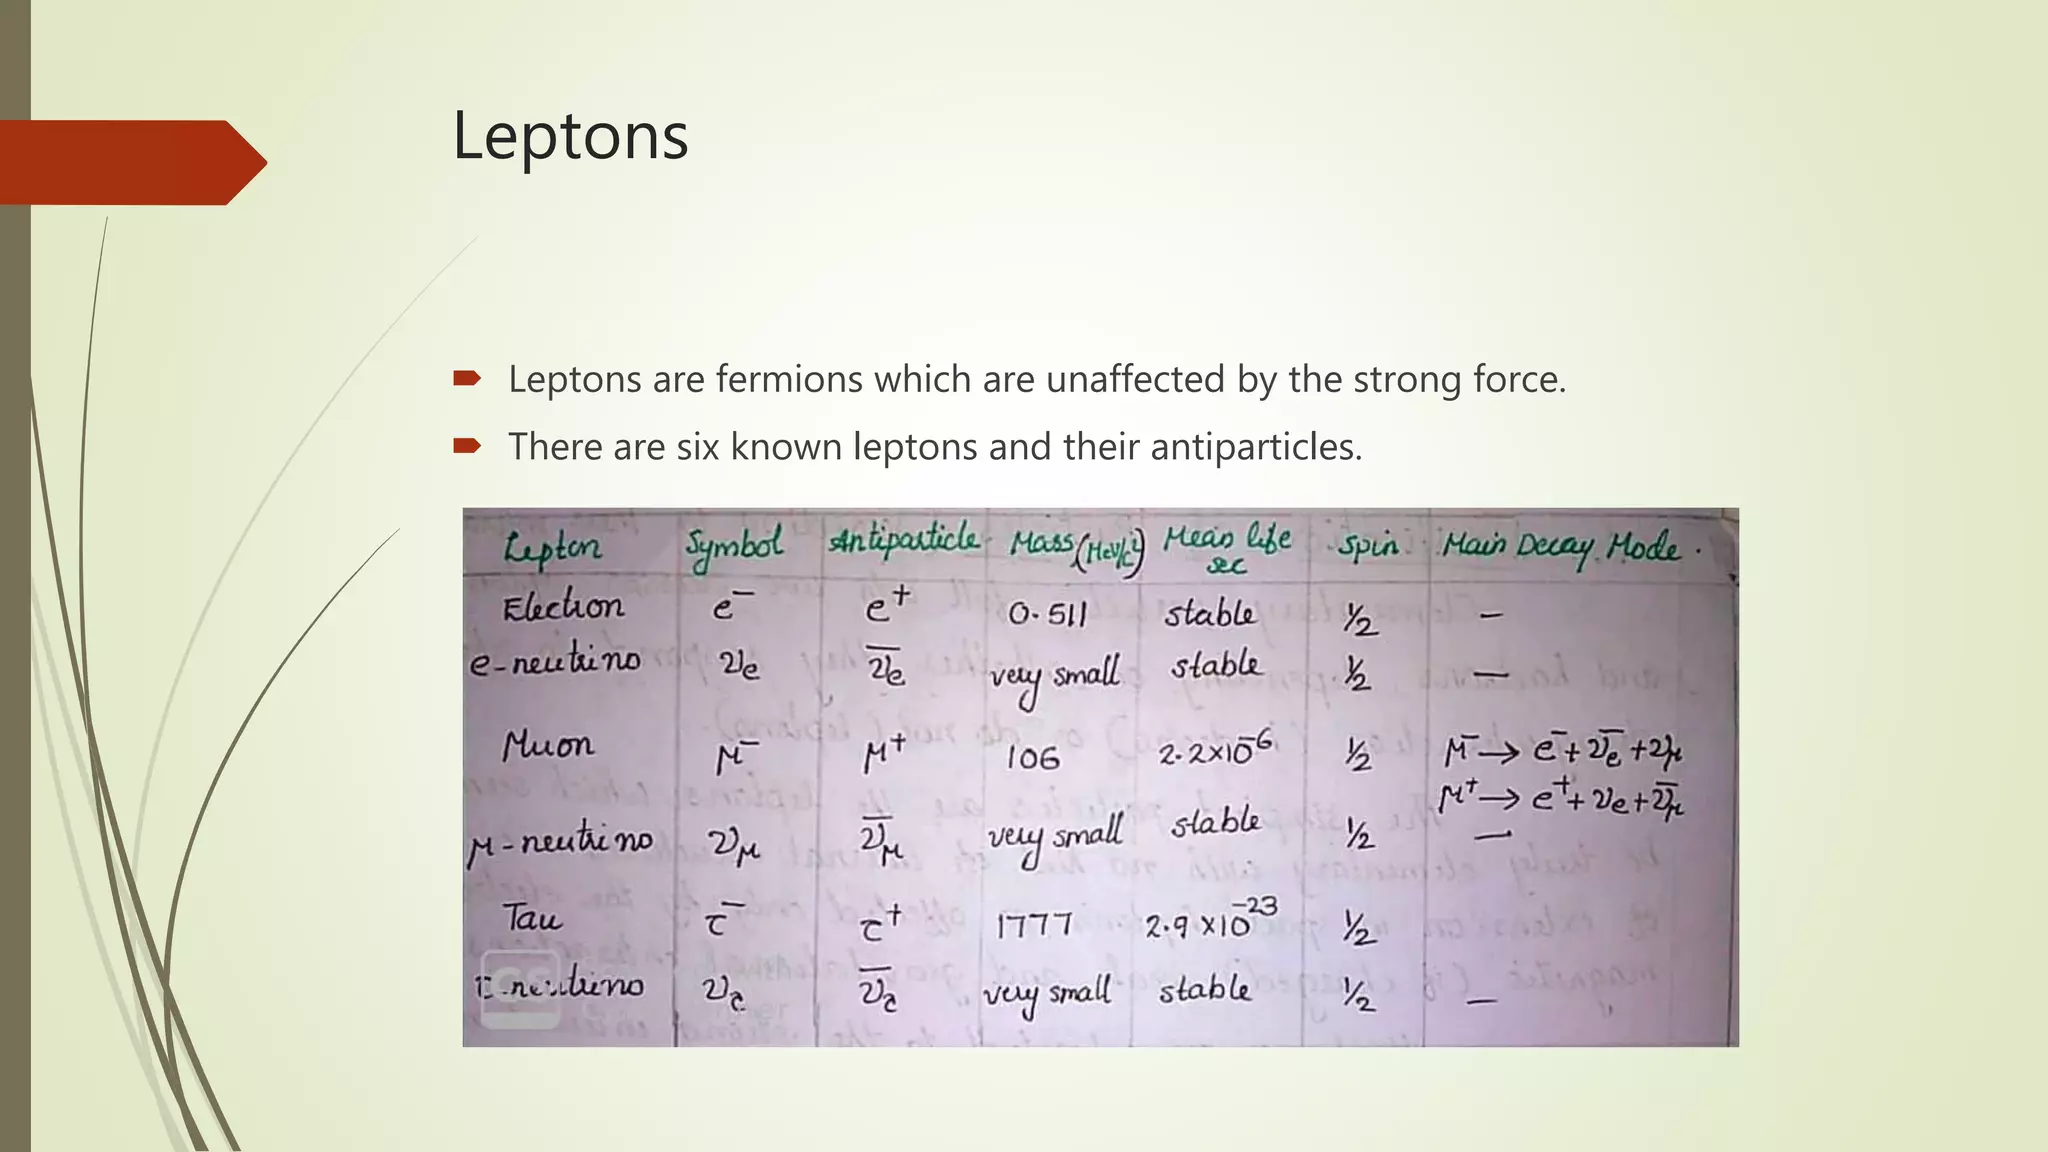 Leptons
Leptons are fermions which are unaffected by the strong force.
There are six known leptons and their antiparticles.
Lepton Symbol Antiparticle Mass (MeV/c²) Mean life sec Spin Main Decay Mode.
Electron e⁻ e⁺ 0.511 stable ½ —
e-neutrino νe ν̅e very small stable ½ —
Muon μ⁻ μ⁺ 106 2.2×10⁻⁶ ½ μ⁻→ e⁻+ν̅e+νμ
μ⁺→ e⁺+νe+ν̅μ
μ-neutrino νμ ν̅μ very small stable ½ —
Tau τ⁻ τ⁺ 1777 2.9×10⁻²³ ½
τ-neutrino ντ ν̅τ very small stable ½ —